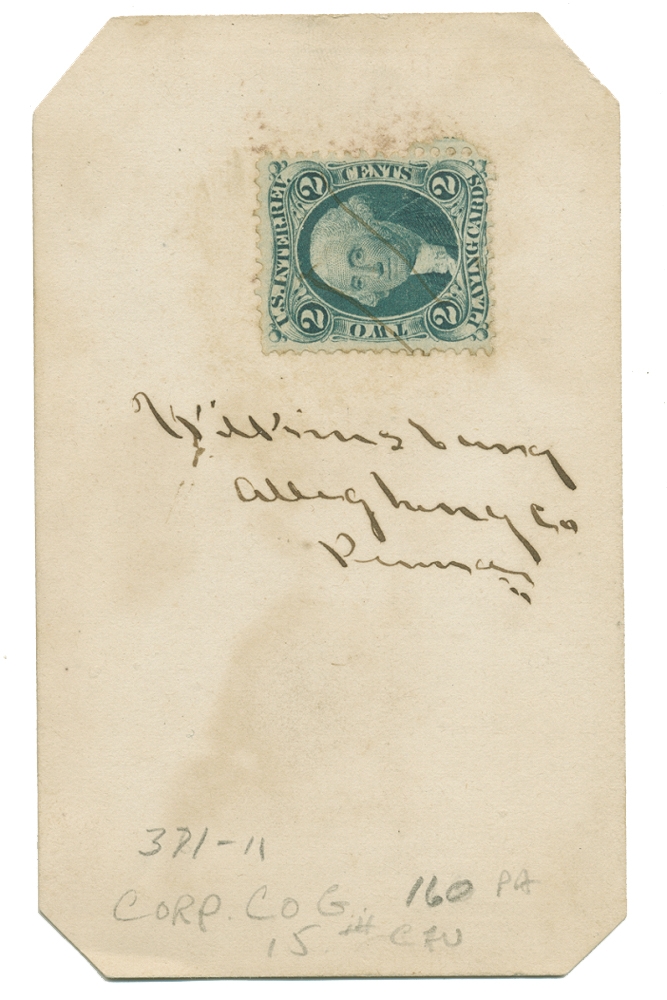 U.S. INTER. REV.
2 CENTS 2
PLAYING CARDS
2 TWO 2
Wilkinsburg
Allegheny Co
Penna
371-11
CORP. CO G. 160 PA
15TH CAV